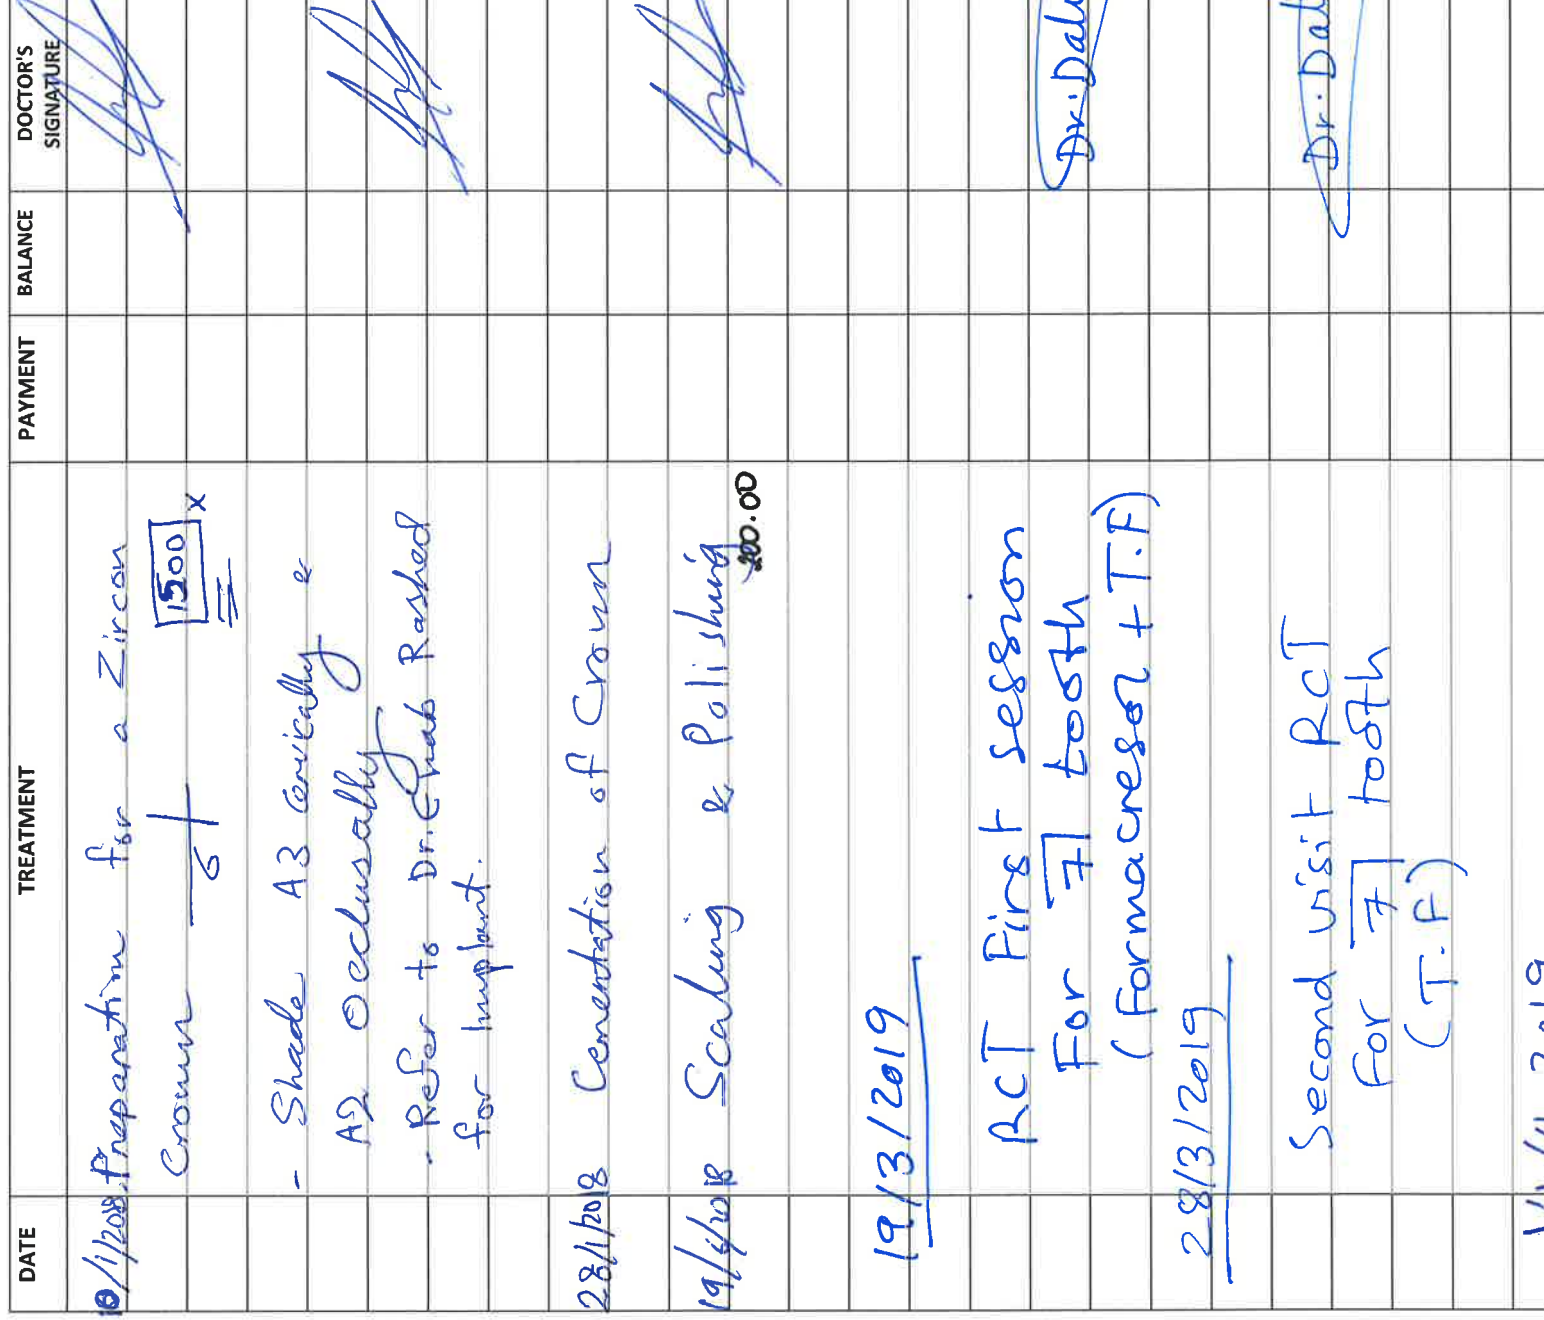 DATE TREATMENT PAYMENT BALANCE DOCTOR'S SIGNATURE
10/1/2018 Preparation for a Zircon
Crown 6 1500 x
- Shade A3 Cervically &
A2 Occlusally
- Refer to Dr. Ehab Rashed
for Implant.
28/1/2018 Cementation of Crown
19/4/2018 Scaling & Polishing
200.00
19/3/2019
RCT First session
For 7 tooth
(Formacresol + T.F)
Dr. Dal
28/3/2019
Second visit RCT
For 7 tooth
(T.F)
Dr. Dal